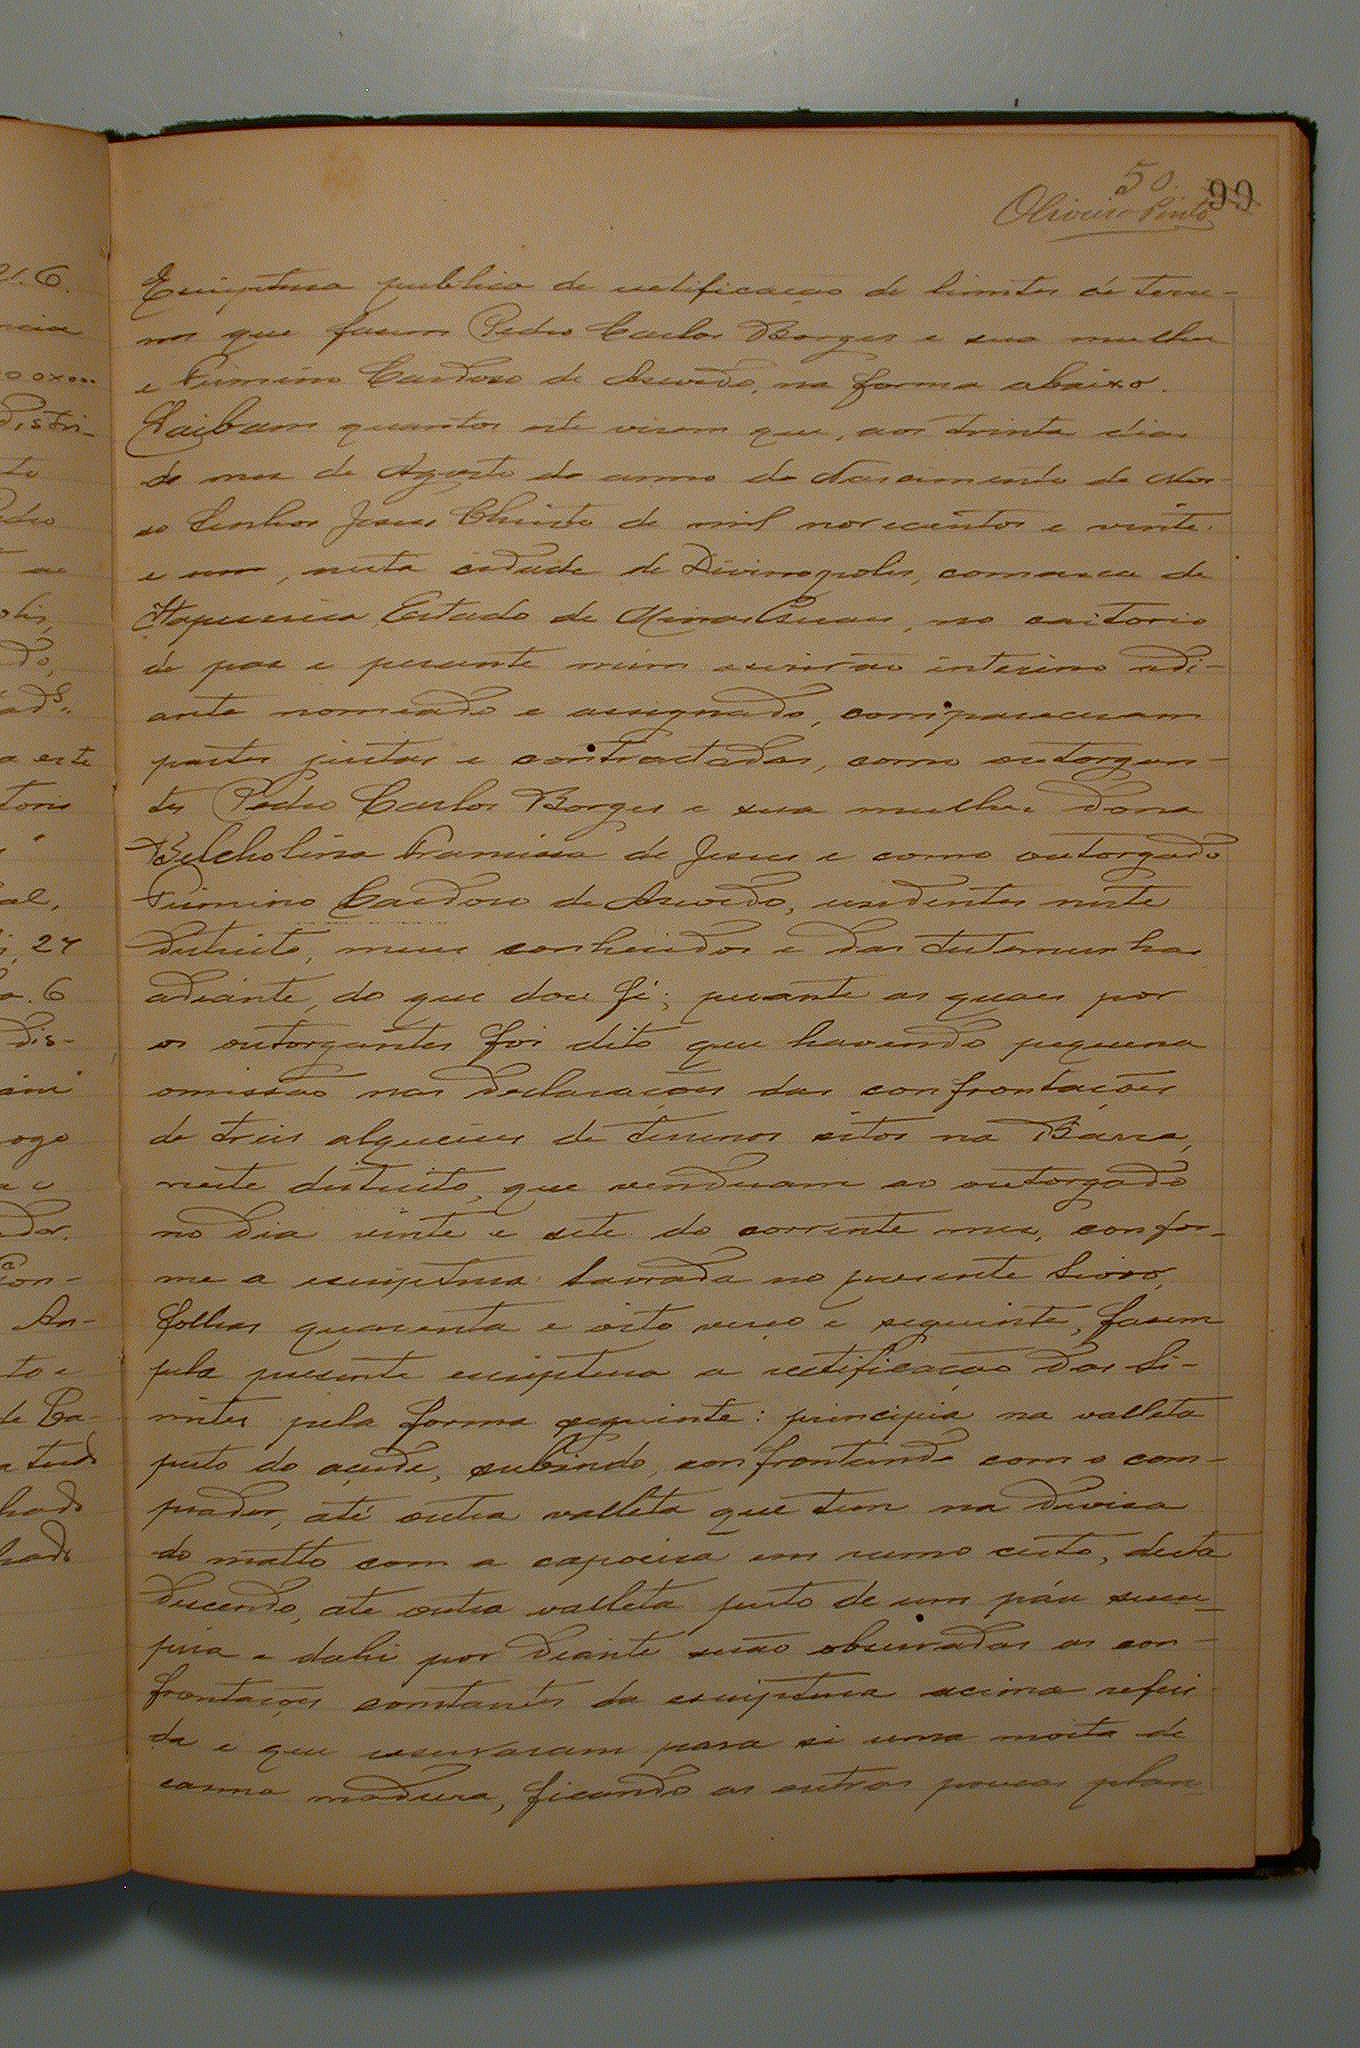 50
99
Oliveira Pinto
Escriptura publica de retificação de limites de terre-
nos que fasem Pedro Carlos Borges e sua mulher
e Firmino Cardoso de Asevedo, na forma abaixo.
Saibam quantos este virem que, aos trinta dias
do mes de Agosto do anno do Nascimento de Nos-
so Senhor Jesus Christo de mil novecentos e vinte
e um, nesta cidade de Divinopolis, comarca de
Itapecerica Estado de Minas Geraes, no cartorio
de paz e perante mim escrivão interino adi-
ante nomeado e assignado, compareceram
partes justas e contractadas, como outorgan-
tes Pedro Carlos Borges e sua mulher Dona
Belcholina Francisca de Jesus e como outorgado
Firmino Cardoso de Asevedo, residentes neste
districto, meus conhecidos e das testemunhas
adiante, do que dou fé; perante as quaes por
os outorgantes foi dito que havendo pequena
omissão nas declarações das confrontações
de treis alqueires de terrenos sitos na Barra,
neste districto, que venderam ao outorgado
no dia vinte e sete do corrente mes, confor-
me a escriptura lavrada no presente livro,
folhas quarenta e oito verso e seguinte, fasem
pela presente escriptura a retificação dos li-
mites pela forma seguinte: principia na valleta
perto do açude, subindo, confrontando com o com-
prador, até outra valleta que tem na divisa
do matto com a capoeira em rumo certo, desta
descendo, até outra valleta perto de um páu sucu-
pira e dahi por deante serão observadas as con-
frontações constantes da escriptura acima referi-
da e que reservaram para si uma moita de
canna madura, ficando as outras poucas plan-
21.6.
ncia
00x000
Distri-
to
Pedro
olis,
do,
ad.
a este
torio
al,
27
6
Dis-
ogo
dor.
con-
An-
to e
de Ca-
tudo
hado
hado